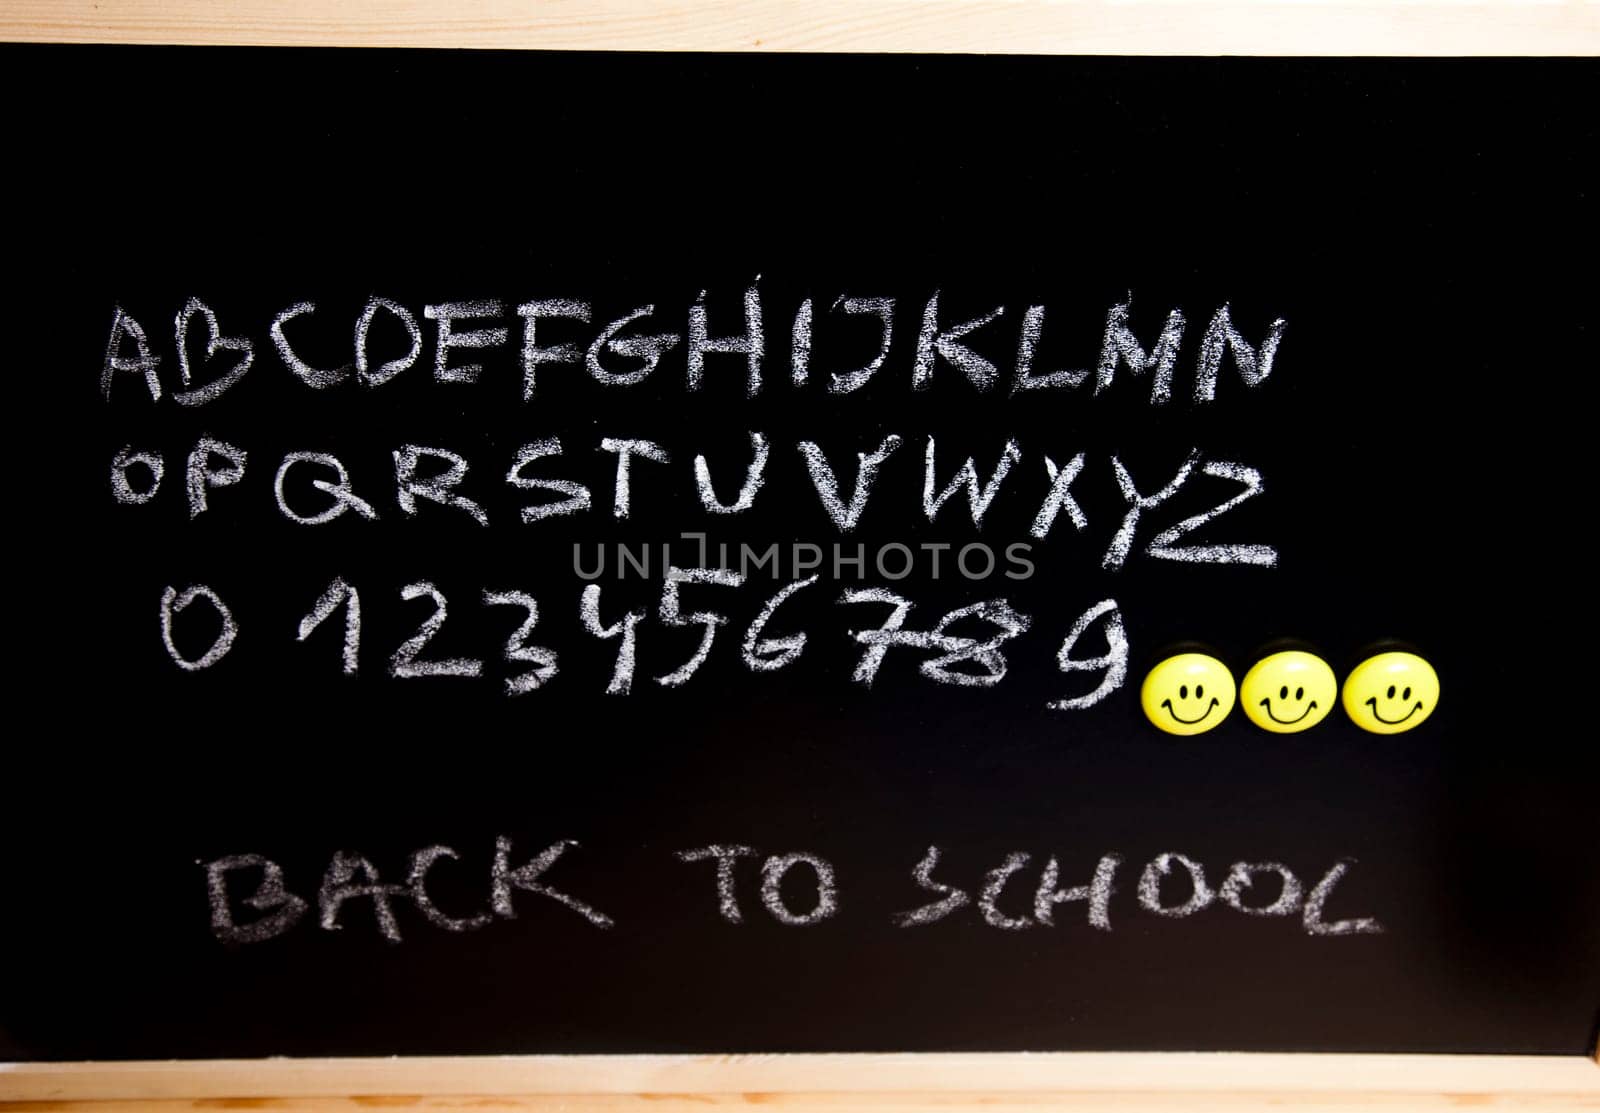 ABCDEFGHIJKLMN
OPQRSTUVWXYZ
UNIJIMPHOTOS
0123456789
BACK TO SCHOOL